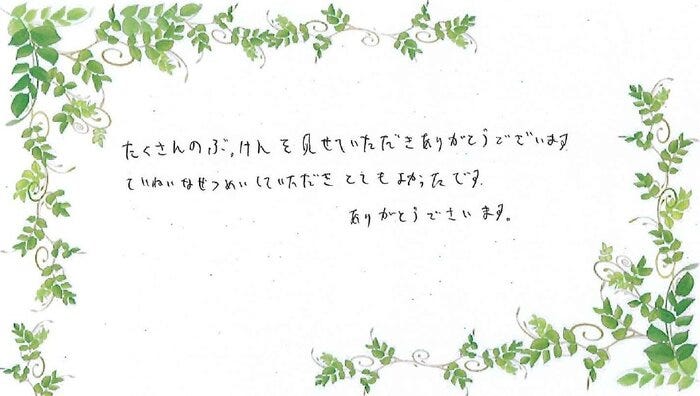 たくさんのぶっけんを見せていただきありがとうございます
ていねいなせつめいしていただき とてもよかったです.
ありがとうございます。